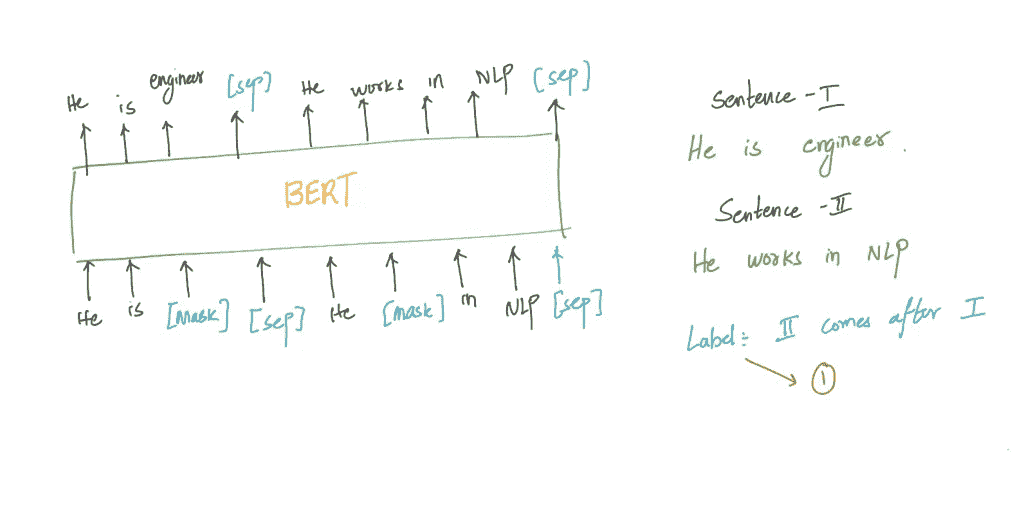 He is engineer [sep] He works in NLP [sep]
BERT
He is [mask] [sep] He [mask] in NLP [sep]
Sentence - I
He is engineer.
Sentence - II
He works in NLP
Label: II comes after I
1